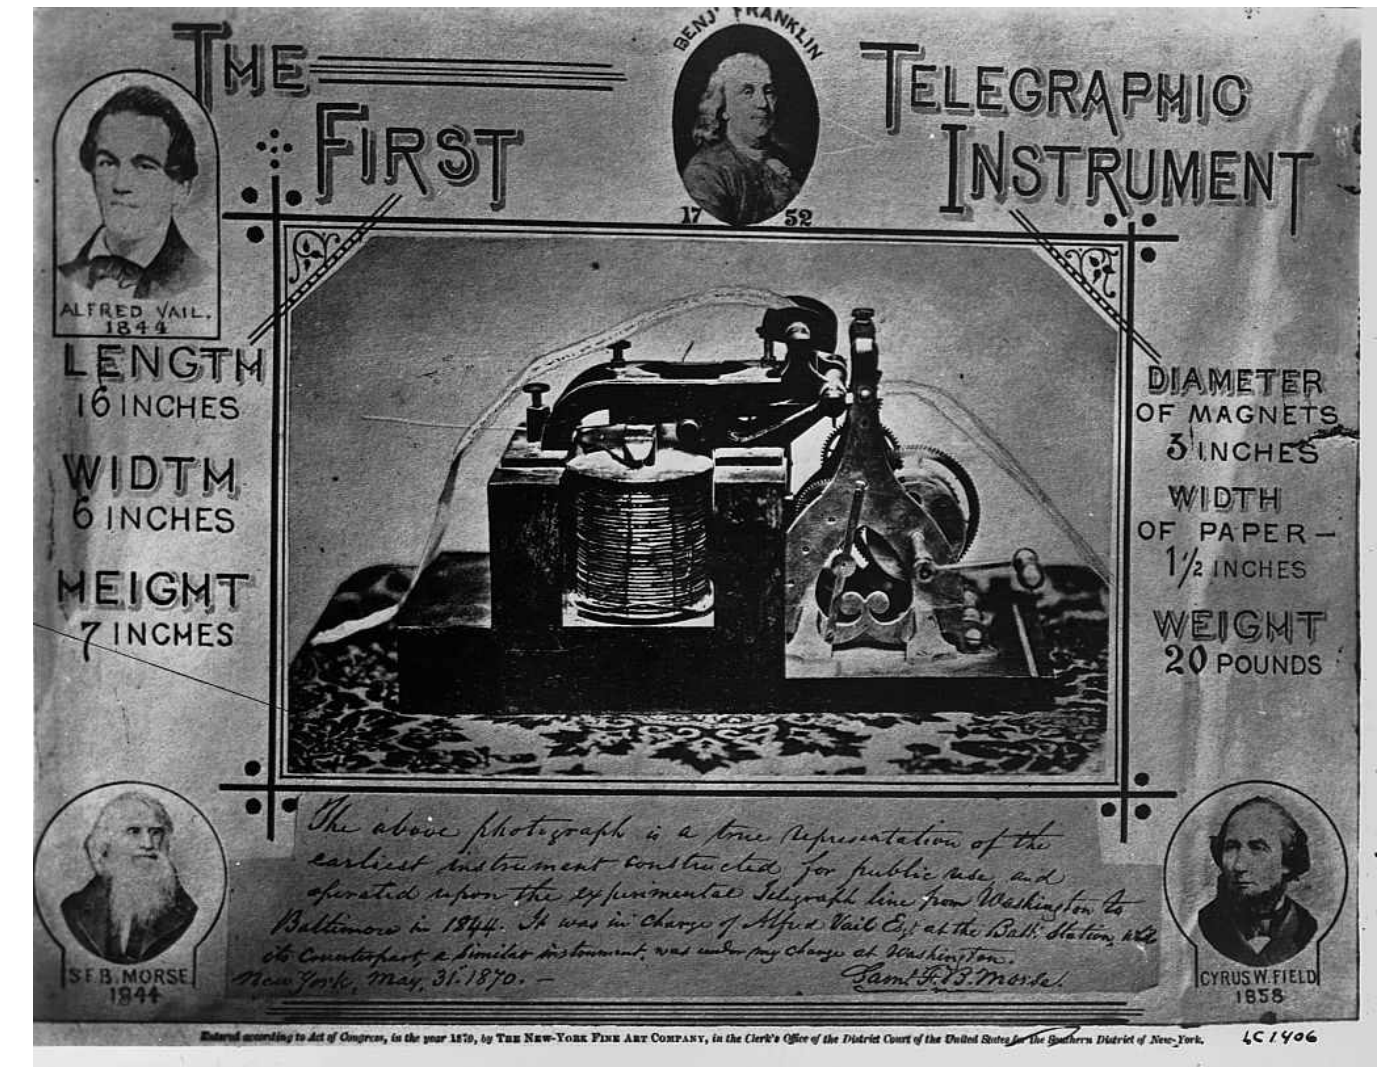 THE
FIRST
BENJ' FRANKLIN
17 52
TELEGRAPHIC
INSTRUMENT
ALFRED VAIL.
1844
LENGTH
16 INCHES
WIDTH
6 INCHES
HEIGHT
7 INCHES
DIAMETER
OF MAGNETS
3 INCHES
WIDTH
OF PAPER –
1 1/2 INCHES
WEIGHT
20 POUNDS
The above photograph is a true representation of the
earliest instrument constructed for public use and
operated upon the experimental Telegraph line from Washington to
Baltimore in 1844. It was in charge of Alfred Vail Esq at the Balt. Station, and
its Counterpart, a similar instrument, was under my charge at Washington.
New York, May, 31. 1870. –
Saml. F. B. Morse.
S.F.B. MORSE
1844
CYRUS W. FIELD
1858
Entered according to Act of Congress, in the year 1870, by THE NEW-YORK FINE ART COMPANY, in the Clerk's Office of the District Court of the United States for the Southern District of New-York.
LC 1406